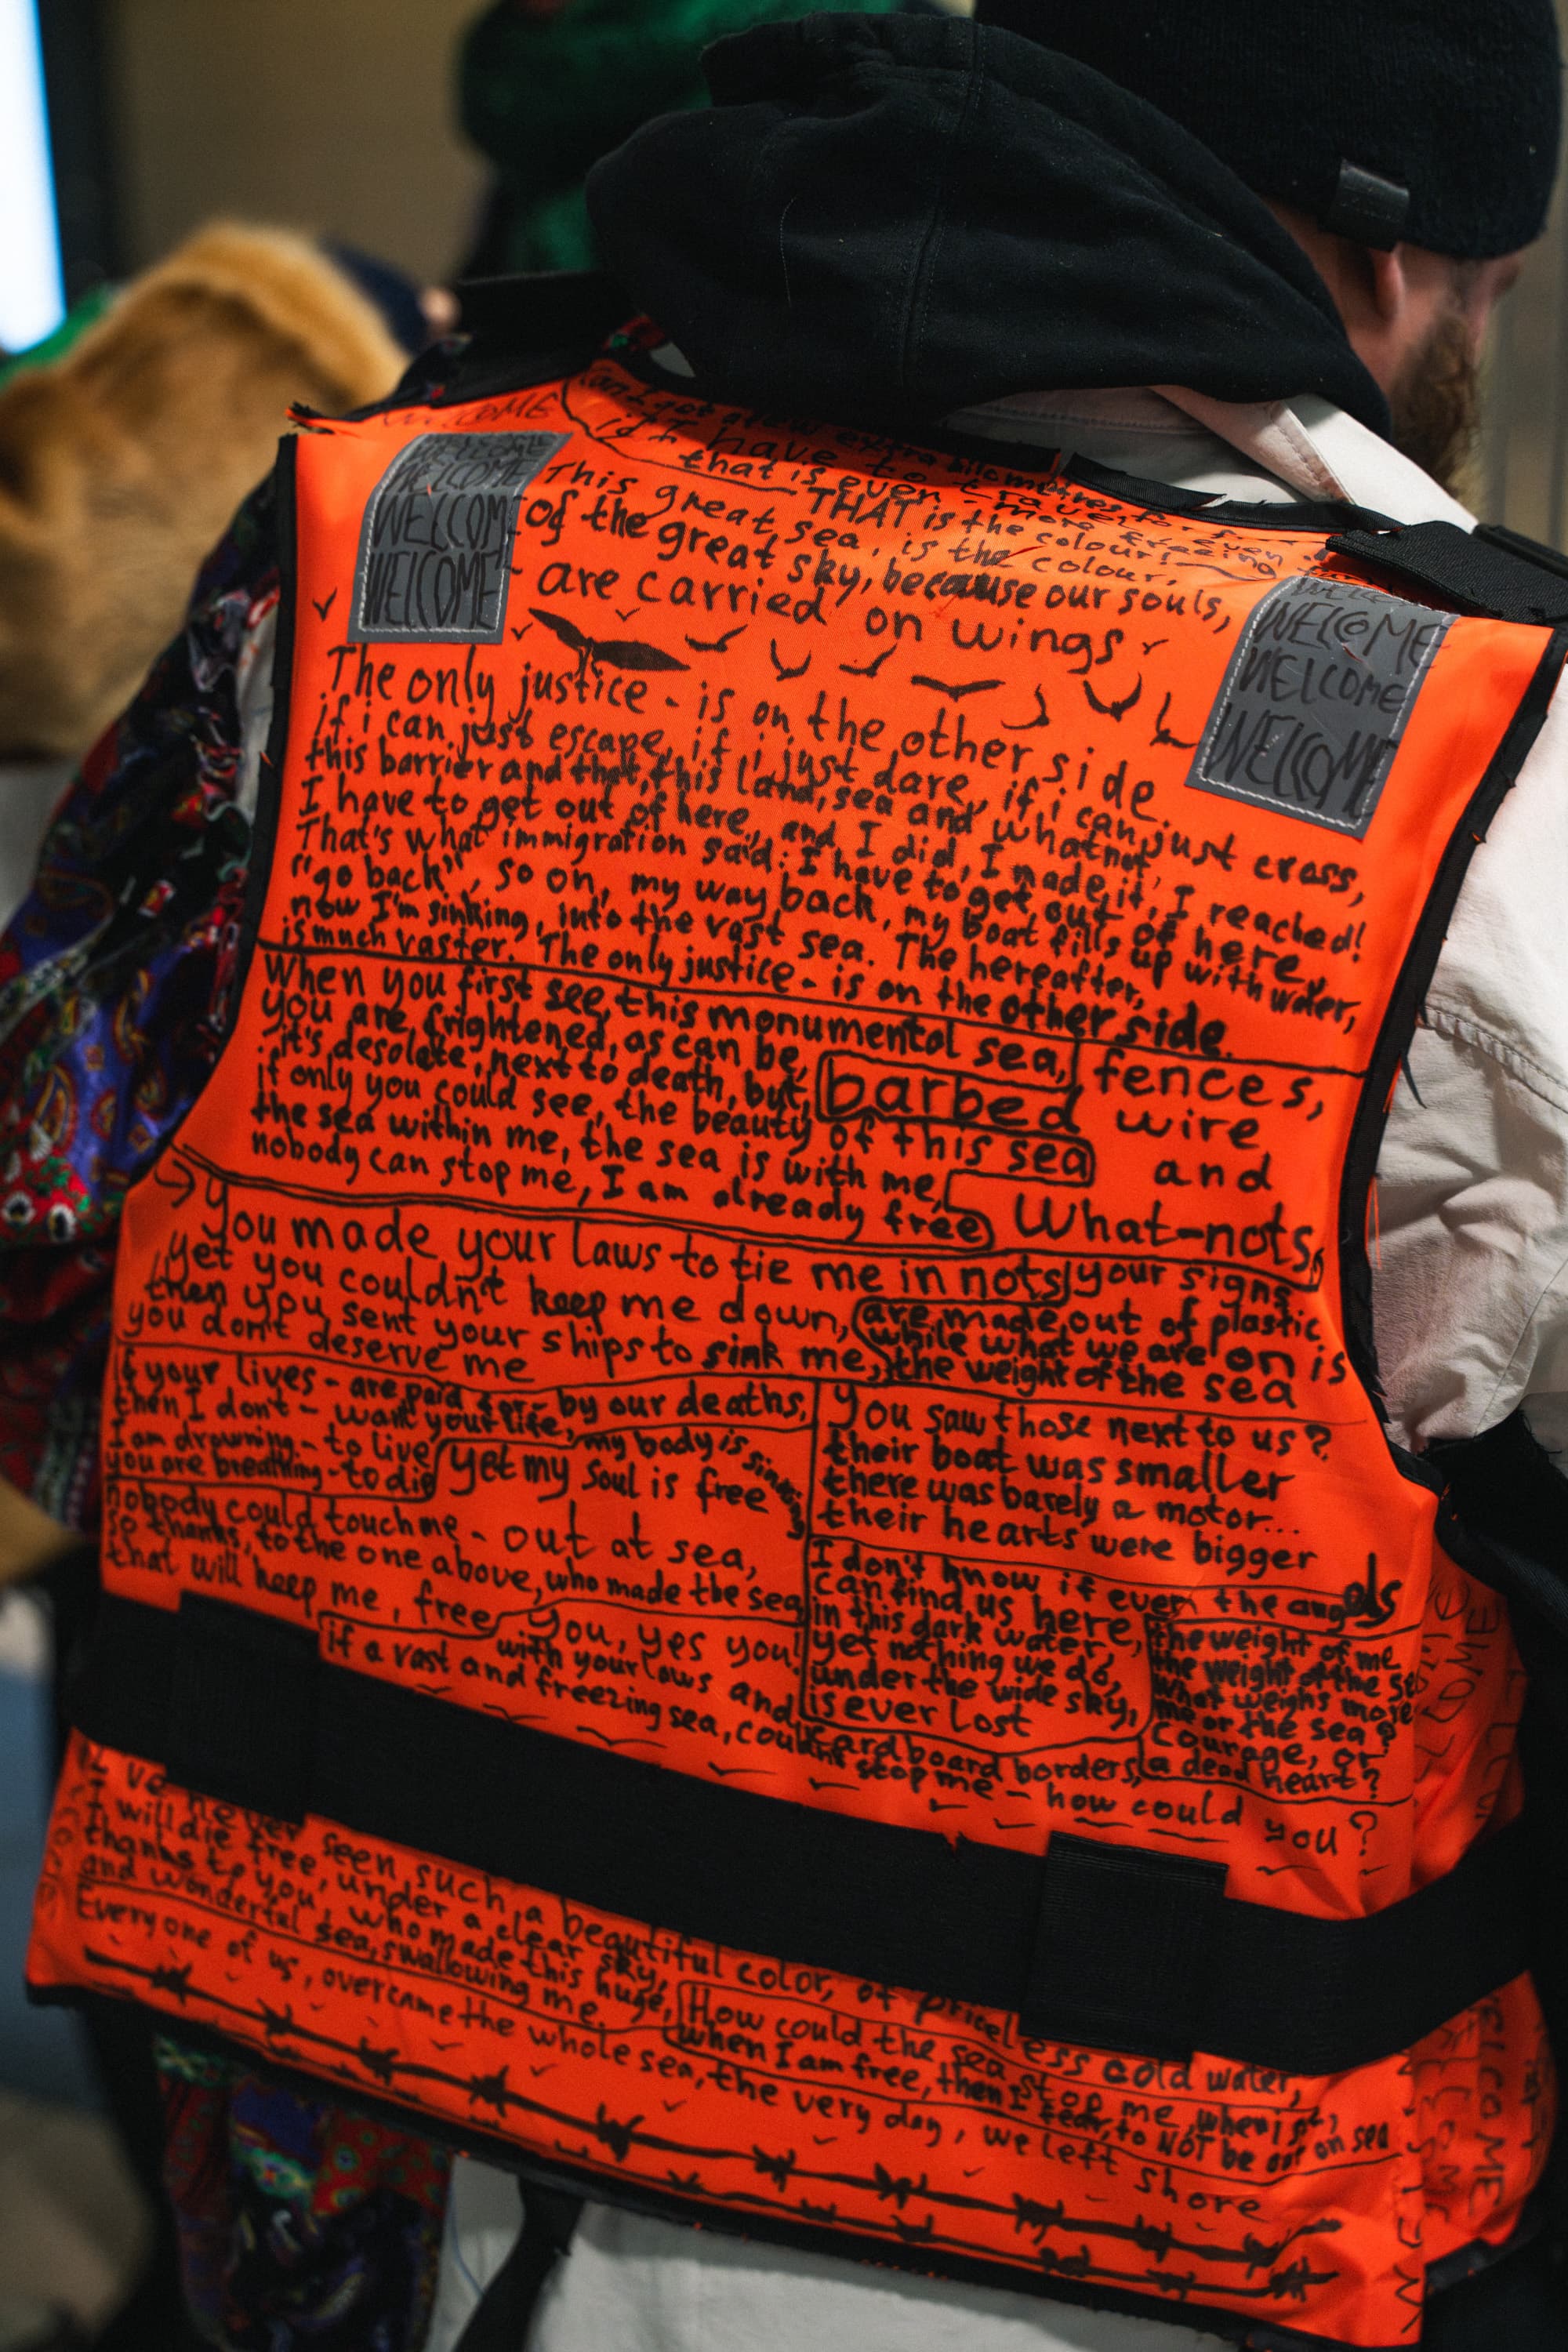 WELCOME
WELCOME
WELCOME
WELCOME
WELCOME
if I have to travel
that is even more freeing
THAT is the colour!
This great sea, is the colour,
of the great sky, because our souls,
- are carried on wings
WELCOME
WELCOME
WELCOME
WELCOME
The only justice - is on the other side
if i can just escape, if i just dare, if i can just cross,
this barrier and that, this land, sea and whatnot,
I have to get out of here, and I did, I made it, I reached!
That's what immigration said: I have to get out of here,
"go back", so on, my way back, my boat fills up with water,
now I'm sinking, into the vast sea. The hereafter,
is much vaster. The only justice - is on the other side.
When you first see, this monumental sea,
you are frightened, as can be,
it's desolate, next to death, but,
if only you could see, the beauty of this sea
the sea within me, the sea is with me,
nobody can stop me, I am already free
fences,
barbed wire
and
What-nots,
You made your laws to tie me in nots
yet you couldn't keep me down,
then you sent your ships to sink me,
you don't deserve me
your signs
are made out of plastic
while what we are on is
the weight of the sea
if your lives - are paid for - by our deaths,
then I don't - want your life,
I am drowning - to live
you are breathing - to die
yet my soul is free
my body is sinking
nobody could touch me - out at sea,
so thanks, to the one above, who made the sea
that will keep me, free
You saw those next to us?
their boat was smaller
there was barely a motor...
their hearts were bigger
I don't know if even the angels
can find us here,
in this dark water,
yet nothing we do,
under the wide sky,
is ever lost
the weight of me
the weight of the sea
what weighs more
me or the sea?
courage, or
a dead heart?
you, yes you!
with your laws and cardboard borders,
if a vast and freezing sea, couldn't stop me - how could you?
I've never seen such a beautiful color, of priceless cold water,
I will die free, under a clear sky,
thanks to you, who made this huge,
and wonderful sea, swallowing me.
How could the sea stop me, when
when I am free, then I fear, to NOT be out on sea
Every one of us, overcame the whole sea, the very day, we left shore